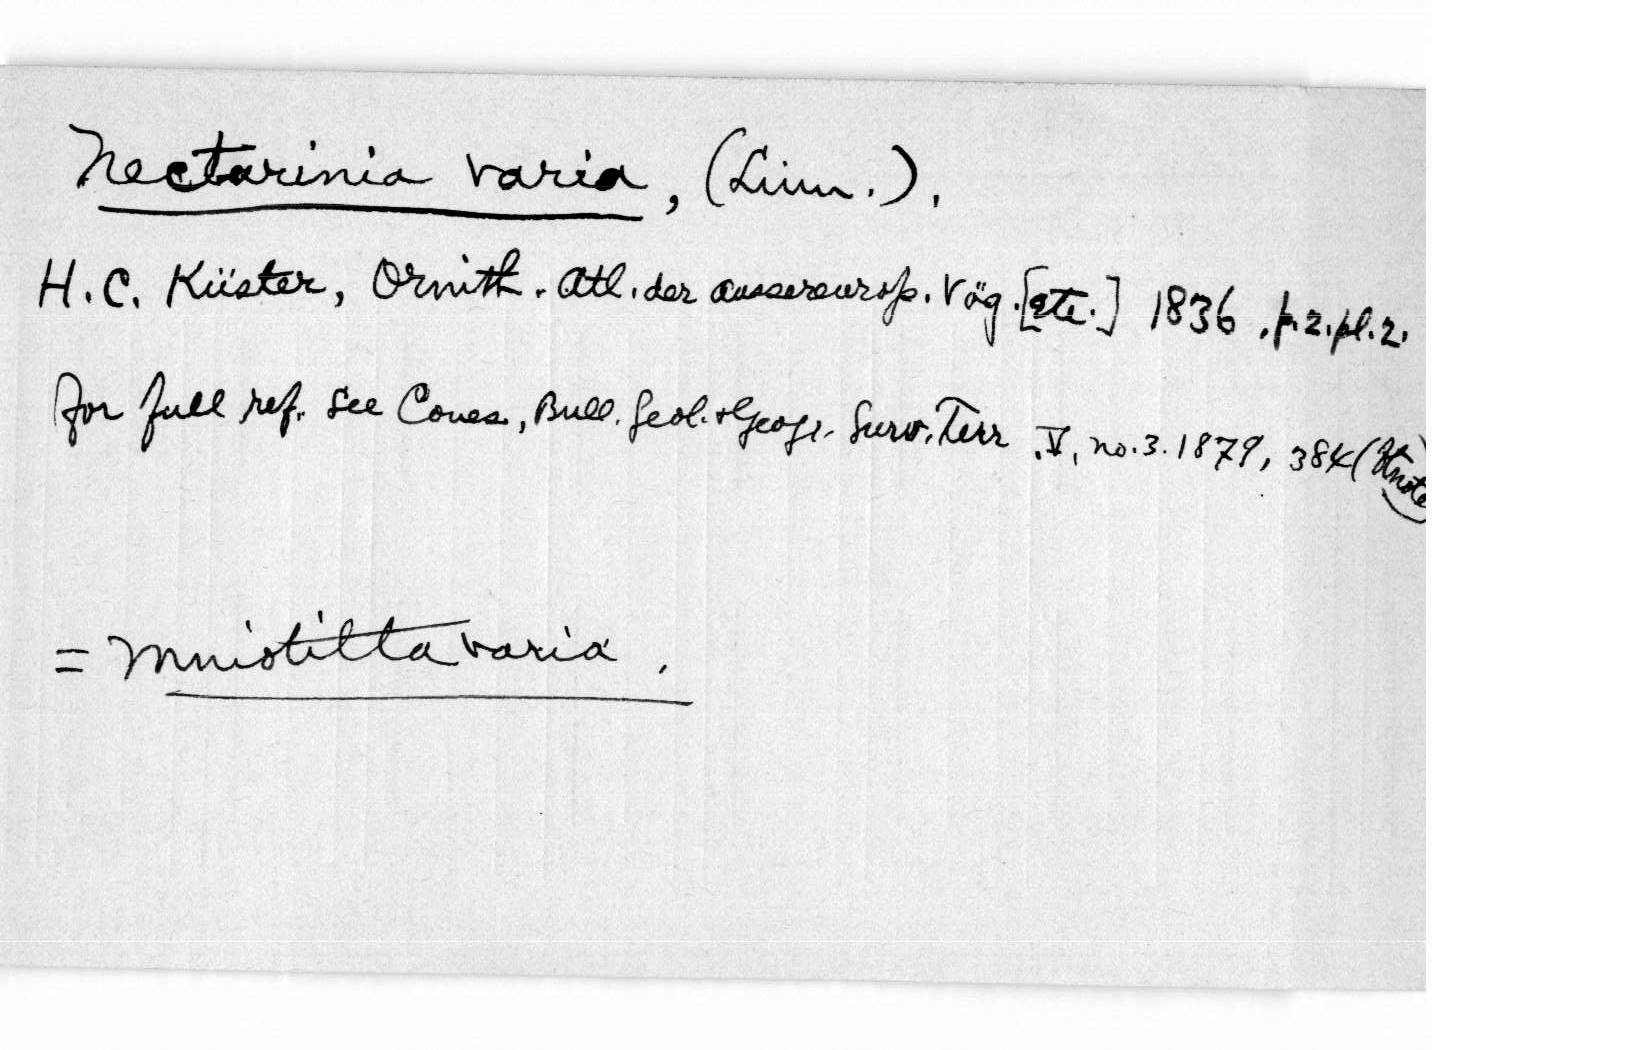 Nectarinia varia, (Linn.).
H. C. Küster, Ornith. Atl. der aussereurop. Vög. [etc.] 1836, p. 2. pl. 2.
For full ref. see Coues, Bull. Geol. & Geogr. Surv. Terr. V, no. 3. 1879, 384 (ftnote)
= Mniotilta varia.